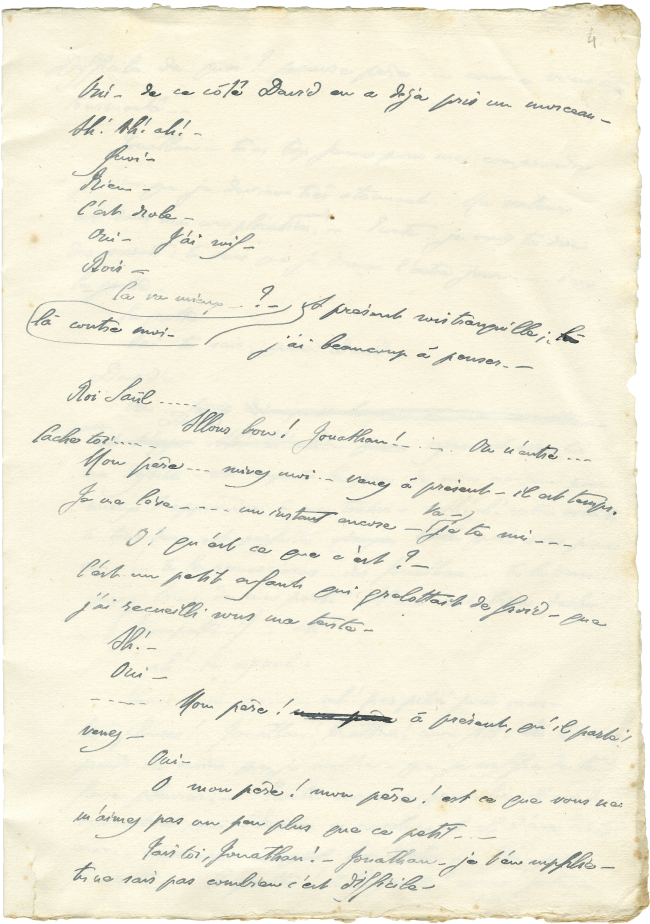 4
Oui – de ce côté David en a déjà pris un morceau –
Ah! Ah! ah! –
Quoi –
Rien –
C'est drole –
Oui – J'ai soif –
Bois –
Ça va mieux – ? – A présent sois tranquille;
là contre moi –
j'ai beaucoup à penser. –
Roi Saül .....
Allons bon! Jonathan! ..... On n'entre ...
Cache toi .....
Mon père ... suivez moi .. venez à présent – il est temps.
Je me lève .... un instant encore – Va – je te sui ...
O! qu'est ce que c'est? –
C'est un petit enfant qui grelottait de froid – que
j'ai recueilli sous ma tente –
Ah! –
Oui –
..... Mon père! à présent, qu'il parte!
venez –
Oui –
O mon père! mon père! est ce que vous ne
m'aimez pas un peu plus que ce petit ...
Tais toi, Jonathan! – Jonathan – je t'en supplie –
tu ne sais pas combien c'est difficile –